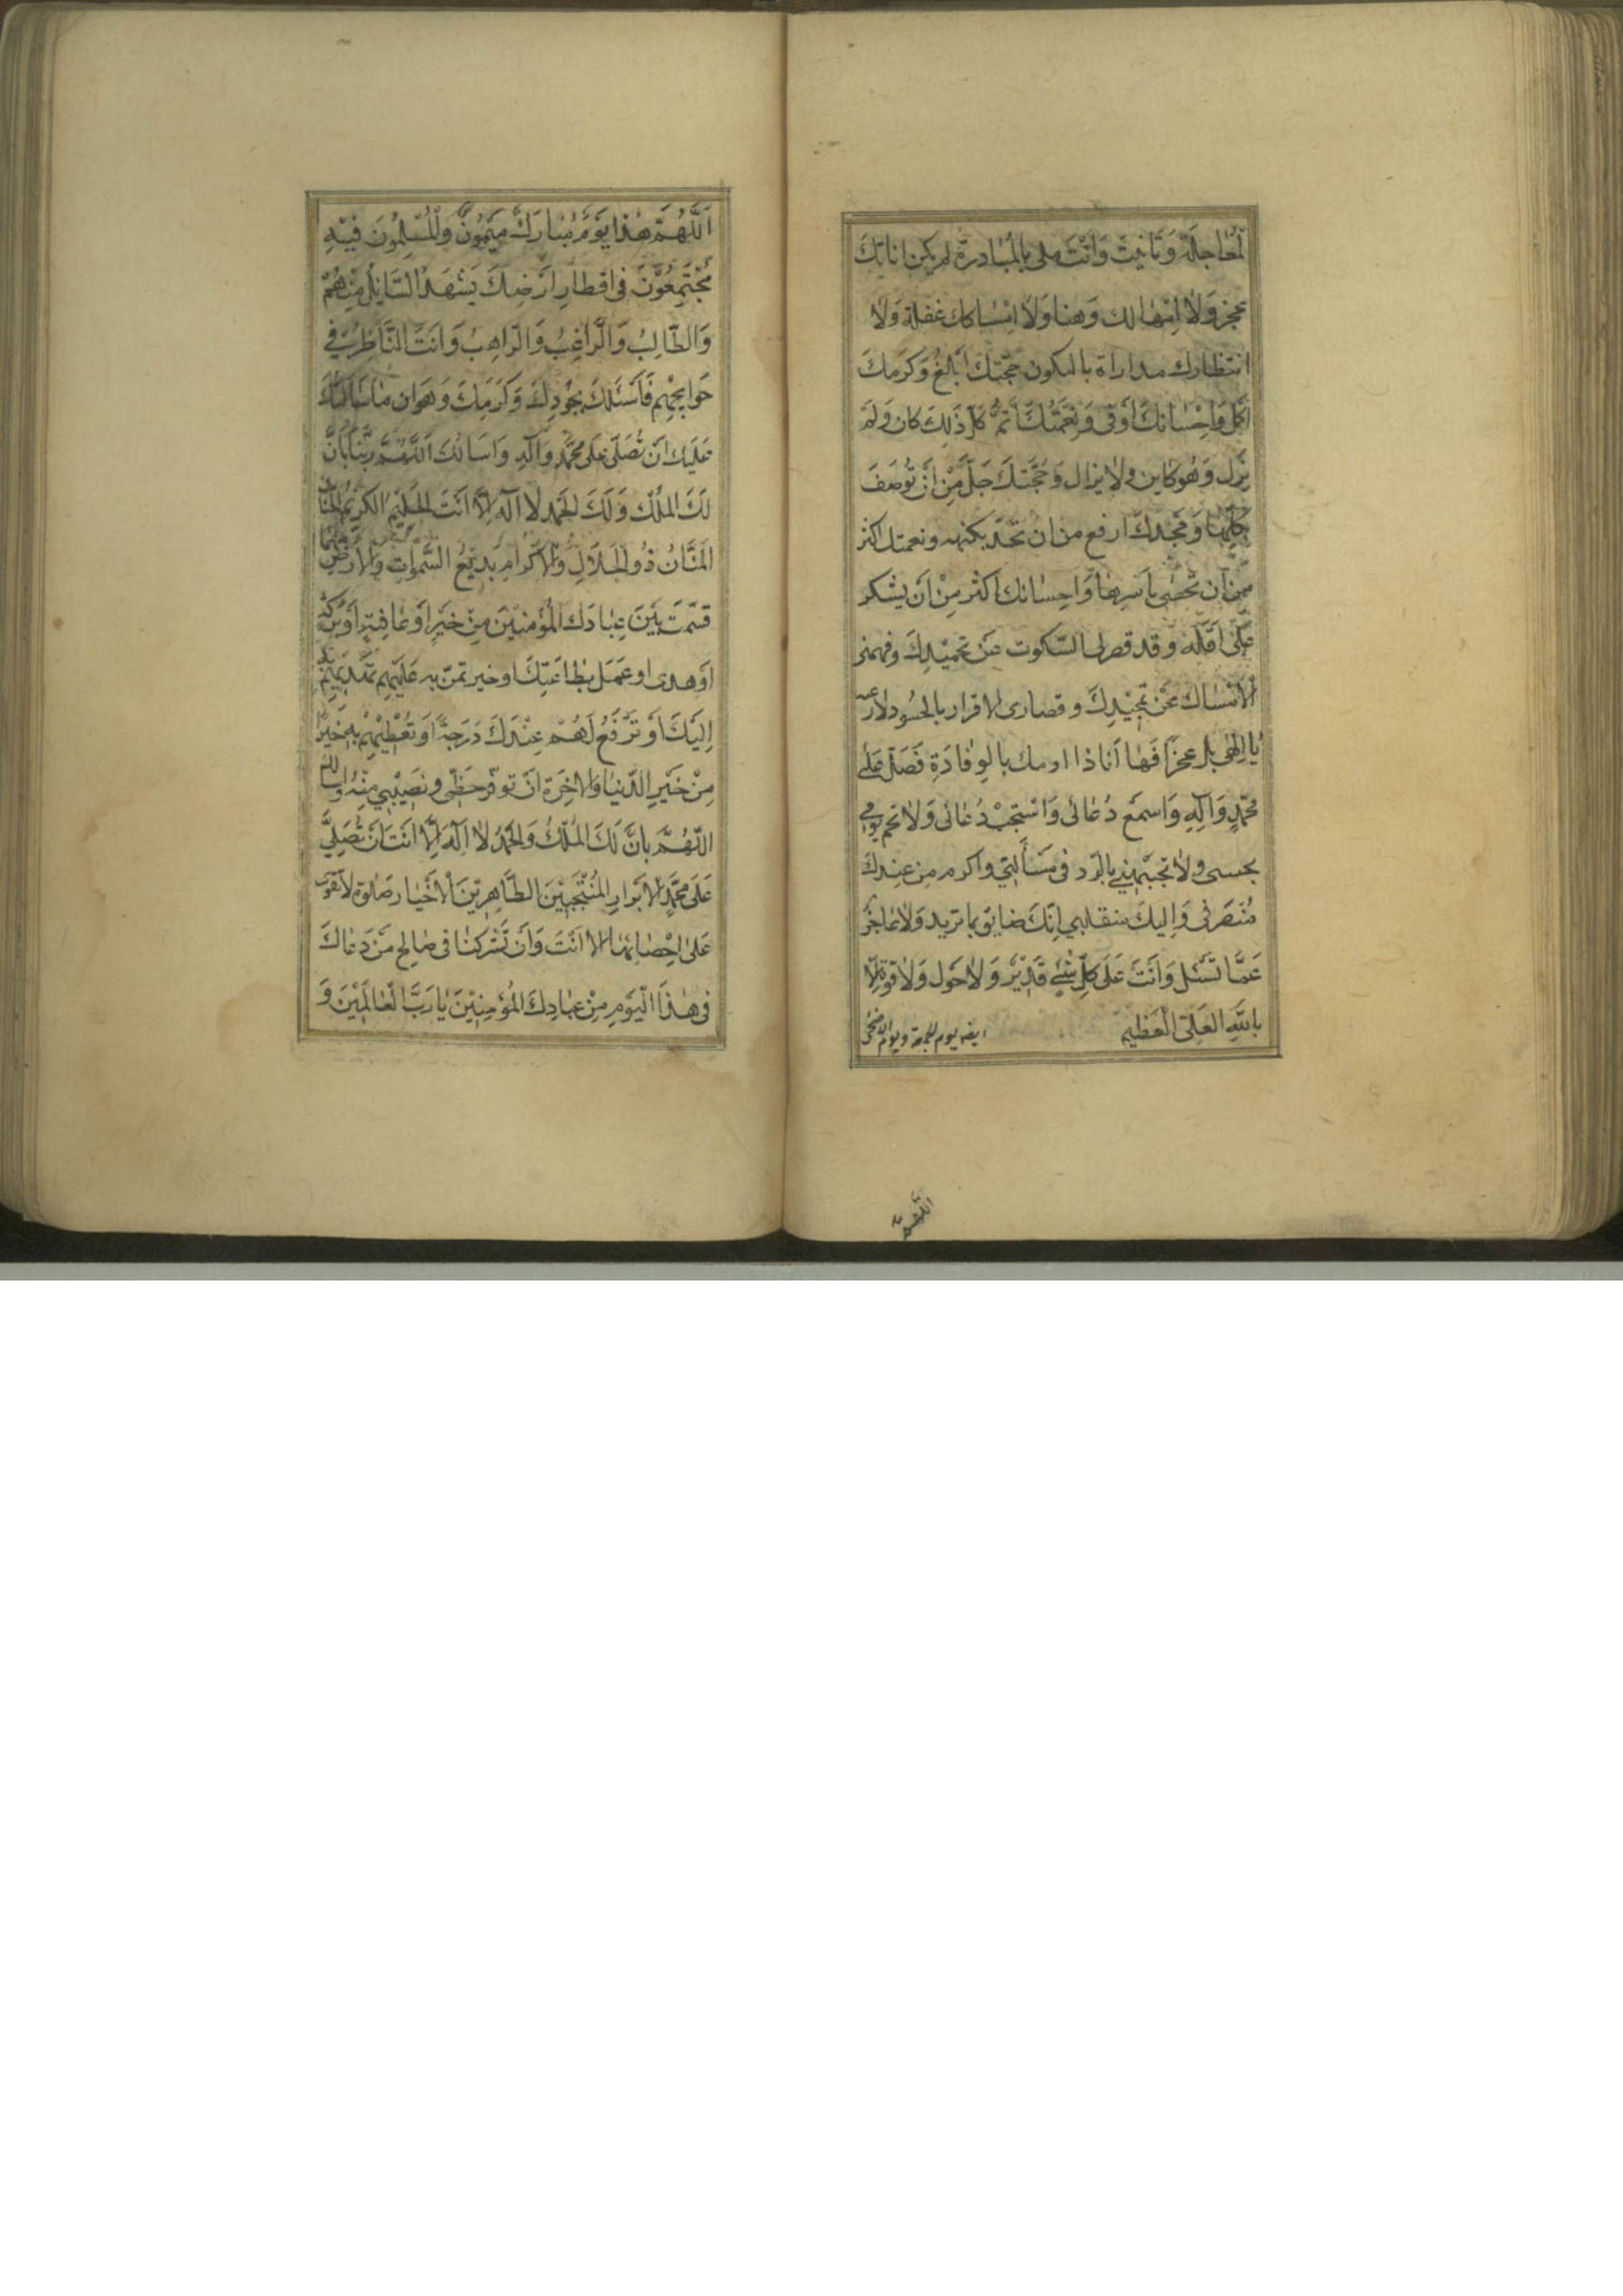 لمعاجلة وتانيت وانت ملي بالمبادرة لم يكن اناتك
عجز ولا امهالك وهنا ولا امساكك غفلة ولا
انتظارك مداراة بل لتكون حجتك ابلغ وكرمك
اكمل واحسانك اوفى ونعمتك اتم كل ذلك كان ولم
يزل وهو كاين ولا يزال وحجتك جل من ان توصف
بكلها ومجدك ارفع من ان تحد بكنهه ونعمتك اكثر
من ان تحصى باسرها واحسانك اكثر من ان يشكر
على اقله وقد قصر لى السكوت عن تحميدك وفهمنى
الامساك عن تمجيدك وقصارى الاقرار بالحسور لارغبه
يا الهى بل عجزا فها انا ذا اومك بالوفادة فصل على
محمد وآله واسمع دعائى واستجب دعائى ولا تختم يومى
بخيبتى ولا تجبهنى بالرد فى مسألتى واكرم من عندك
منصرفى واليك منقلبى انك ضايق بما تريد ولا عاجز
عما تسئل وانت على كل شىء قدير ولا حول ولا قوة الا
بالله العلى العظيم ايضه يوم الجمعة ويوم الاضحى
اللهم
اللهم هذا يوم مبارك ميمون والمسلمون فيه
مجتمعون فى اقطار ارضك يشهد السائل منهم
والطالب والراغب والراهب وانت الناظر فى
حوايجهم فاسئلك بجودك وكرمك وهوان ما سألتك
عليك ان تصلى على محمد وآله واسالك اللهم ربنا بان
لك الملك ولك الحمد لا اله الا انت الحليم الكريم الحنان
المنان ذو الجلال والاكرام بديع السموات والارض مهما
قسمت بين عبادك المؤمنين من خير او عافية او بركة
او هدى او عمل بطاعتك او خير تمن به عليهم تهديهم به
اليك او ترفع لهم عندك درجة او تعطيهم به خيرا
من خير الدنيا والاخرة ان توفر حظى ونصيبى منه واسالك
اللهم بان لك الملك والحمد لا اله الا انت ان تصلى
على محمد الابرار المنتجبين الطاهرين الاخيار صلوة لا تقوى
على احصائها الا انت وان تشركنا فى صالح من دعاك
فى هذا اليوم من عبادك المؤمنين يا رب العالمين و